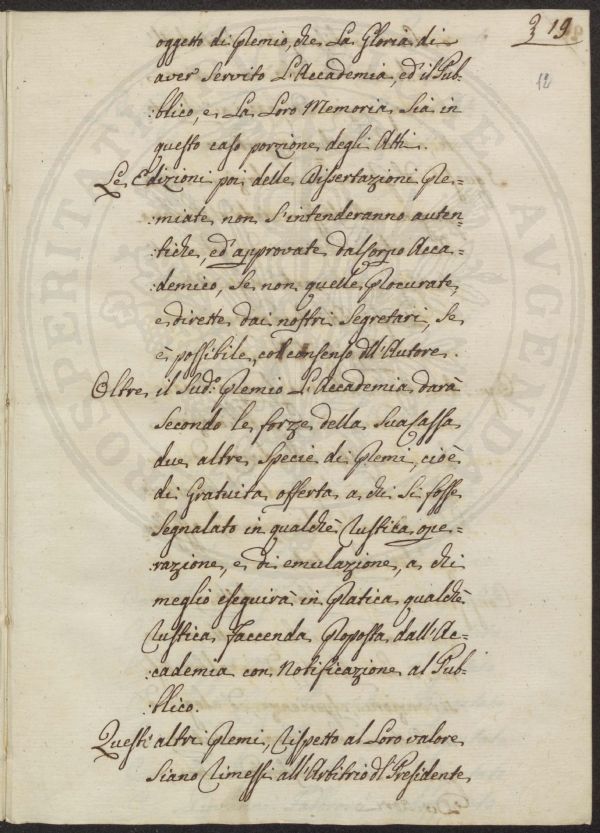 3 19
12
oggetto di Premio, che La Gloria di
aver Servito L'Accademia, ed il Pub-
:blico, e La Loro Memoria Sia in
questo caso porzione degli Atti.
Le Edizioni poi delle Dissertazioni Pre=
:miate non S'intenderanno auten-
:tiche, ed approvate dal Corpo Acca-
:demico, Se non quelle Procurate,
e dirette dai nostri Segretari, Se
è possibile, col consenso dll'Autore.
Oltre il Sud.º Premio L'Accademia darà
Secondo le forze della Sua Cassa
due altre Specie di Premi, cioè
di Gratuita offerta a chi Si fosse
Segnalato in qualchè rustica ope=
:razione, e di emulazione, a chi
meglio eseguirà in Pratica qualchè
rustica Faccenda Proposta dall'Ac=
:cademia con Notificazione al Pub=
:blico.
Questi altri Premi, rispetto al Loro valore
Siano rimessi all'Arbitrio dl' Presidente
PROSPERITATI PUBLICAE AUGENDAE